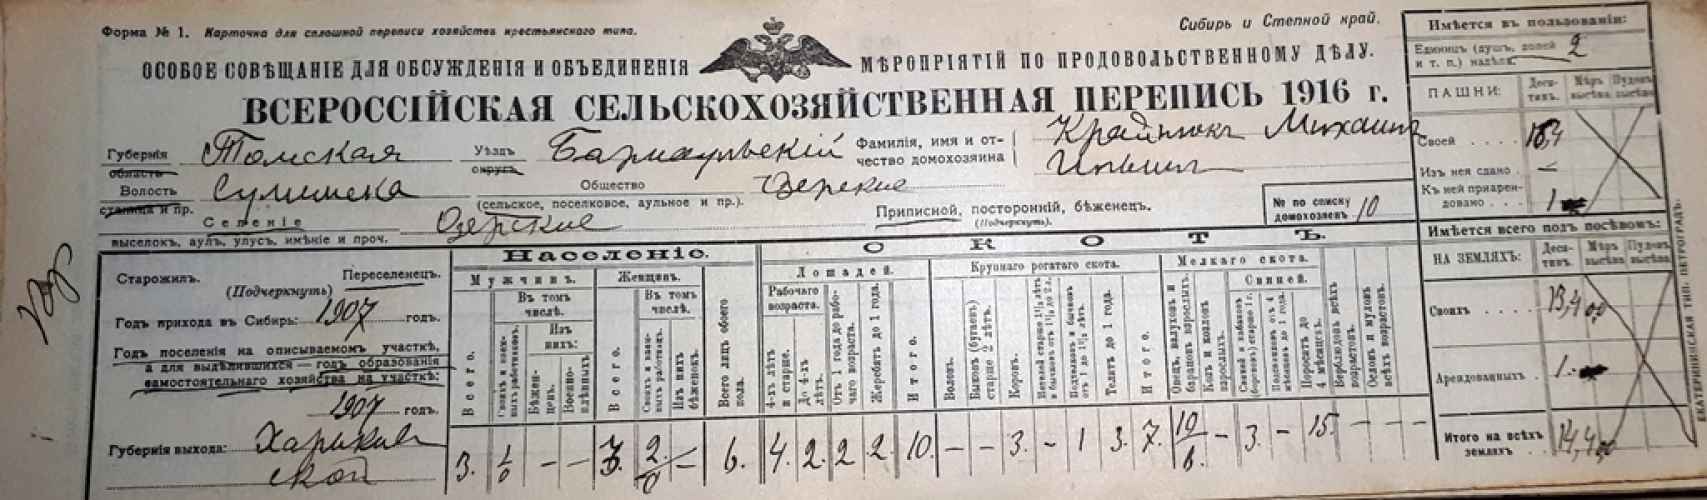 Форма № 1. Карточка для сплошной переписи хозяйствъ крестьянскаго типа.
Сибирь и Степной край.
ОСОБОЕ СОВѢЩАНІЕ ДЛЯ ОБСУЖДЕНІЯ И ОБЪЕДИНЕНІЯ МѢРОПРІЯТІЙ ПО ПРОДОВОЛЬСТВЕННОМУ ДѢЛУ.
ВСЕРОССІЙСКАЯ СЕЛЬСКОХОЗЯЙСТВЕННАЯ ПЕРЕПИСЬ 1916 г.
Губернія Томская Уѣздъ Барнаульскій Фамилія, имя и от- Михаилъ
область округъ чество домохозяина
Волость Общество
станица и пр. (сельское, поселковое, аульное и пр.).
Селеніе Озерские Приписной, посторонній, бѣженецъ.
(Подчеркнуть).
№ по списку
домохозяевъ 10
выселокъ, аулъ, улусъ, имѣніе и проч.
Старожилъ. Переселенецъ.
(Подчеркнуть)
Годъ прихода въ Сибирь: 1907 годъ.
Годъ поселенія на описываемомъ участкѣ,
а для выдѣлившихся — годъ образованія
самостоятельнаго хозяйства на участкѣ:
1907 годъ.
Губернія выхода: Харьков
ской
Населеніе.
Мужчинъ. Женщинъ.
Въ томъ числѣ. Въ томъ числѣ.
Изъ нихъ:
Всего.
Своихъ и наем-
ныхъ работниковъ.
Бѣжен-
цевъ.
Военно-
плѣнныхъ.
Всего.
Своихъ и наем-
ныхъ работницъ.
Изъ нихъ
бѣженокъ.
Всего лицъ обоего
пола.
СКОТЪ.
Лошадей.
Рабочаго
возраста.
4-хъ лѣтъ
и старше.
До 4-хъ
лѣтъ.
Отъ 1 года до рабо-
чаго возраста.
Жеребятъ до 1 года.
Итого.
Крупнаго рогатаго скота.
Воловъ.
Быковъ (бугаевъ)
старше 2 лѣтъ.
Коровъ.
Нетелей старше 1½ лѣтъ
и бычковъ отъ 1½ до 2 л.
Подтелковъ и бычковъ
отъ 1 до 1½ лѣтъ.
Телятъ до 1 года.
Итого.
Мелкаго скота.
Овецъ, валуховъ и
барановъ взрослыхъ.
Козъ и козловъ
взрослыхъ.
Свиней.
Свиней и кабановъ
(борововъ) старше 1 г.
Подсвинковъ отъ 4
мѣсяцевъ до 1 года.
Поросятъ до
4 мѣсяцевъ.
Верблюдовъ всѣхъ
возрастовъ.
Ословъ и муловъ
всѣхъ возрастовъ.
3. 1/0 — — 3. 2/0 — 6. 4. 2. 2 2. 10. — — 3. — 1 3. 7. 10/6. — 3. — 15. — —
Имѣется въ пользованіи:
Единицъ (душъ, долей 2
и т. п.) надѣла:
ПАШНИ: Деся-
тинъ. Мѣръ
высѣва. Пудовъ
высѣва.
Своей
Изъ нея сдано —
Къ ней приарен-
довано 1
Имѣется всего подъ посѣвомъ:
НА ЗЕМЛЯХЪ: Деся-
тинъ. Мѣръ
высѣва. Пудовъ
высѣва.
Своихъ 13,4
Арендованныхъ 1.
Итого на всѣхъ 14,4
земляхъ
ЕКАТЕРИНИНСКАЯ ТИП. ПЕТРОГРАДЪ.